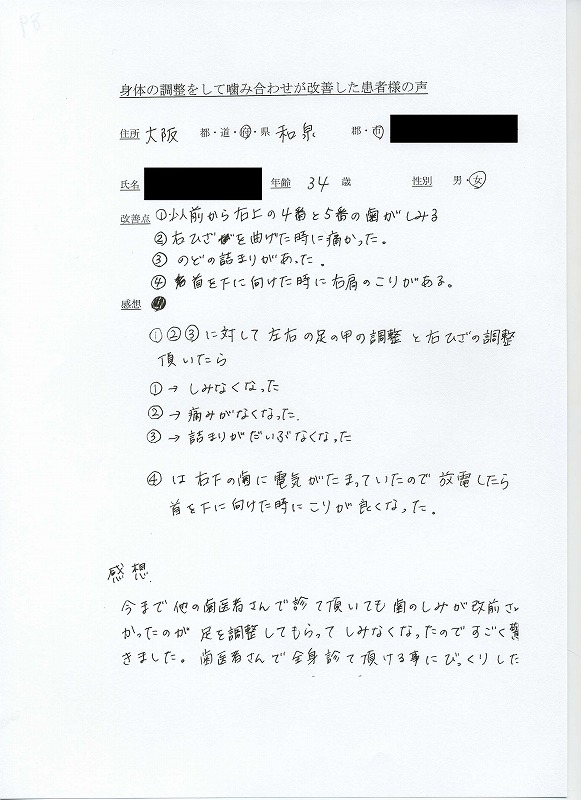 P8
身体の調整をして噛み合わせが改善した患者様の声
住所 大阪 都・道・府・県 和泉 郡・市
氏名 年齢 34 歳 性別 男・女
改善点 ①以前から右上の4番と5番の歯がしみる
②右ひざを曲げた時に痛かった。
③ のどの詰まりがあった。
④ 首を下に向けた時に右肩のこりがある。
感想
①②③に対して左右の足の甲の調整と右ひざの調整
頂いたら
①→しみなくなった
②→痛みがなくなった.
③→詰まりがだいぶなくなった
④は右下の歯に電気がたまっていたので放電したら
首を下に向けた時にこりが良くなった。
感想
今まで他の歯医者さんで診て頂いても歯のしみが改前さ
かったのが足を調整してもらってしみなくなったのですごく驚
きました。歯医者さんで全身診て頂ける事にびっくりした